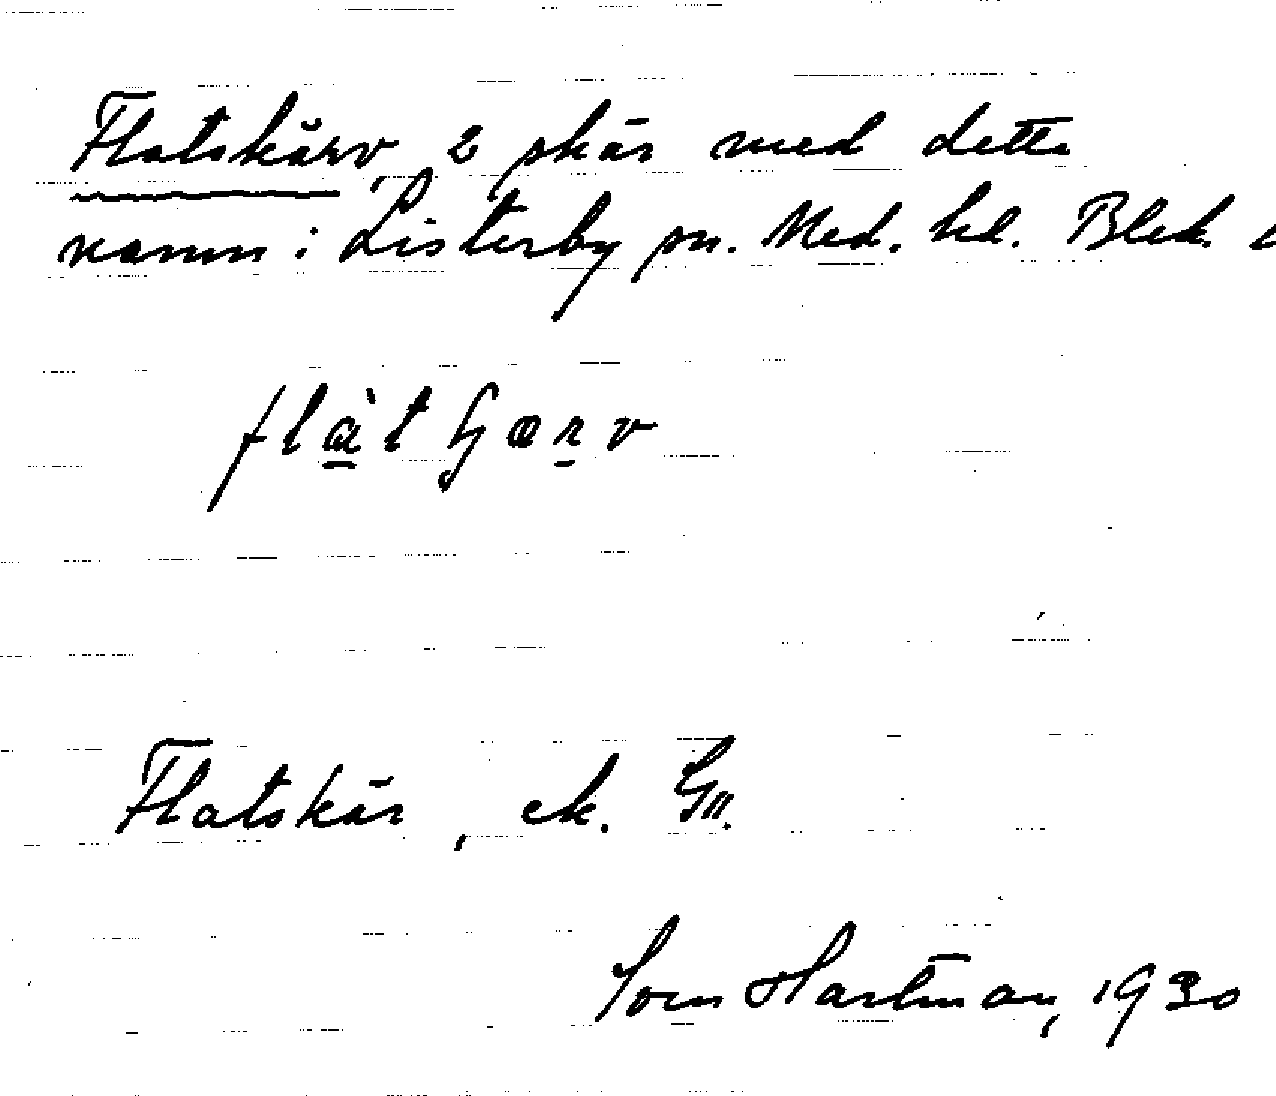 Flatskärv, 2 skär med detta
namn i Listerby sn. Med. hd. Blek.
Flatskär, ek.
Sven Hartman, 1930